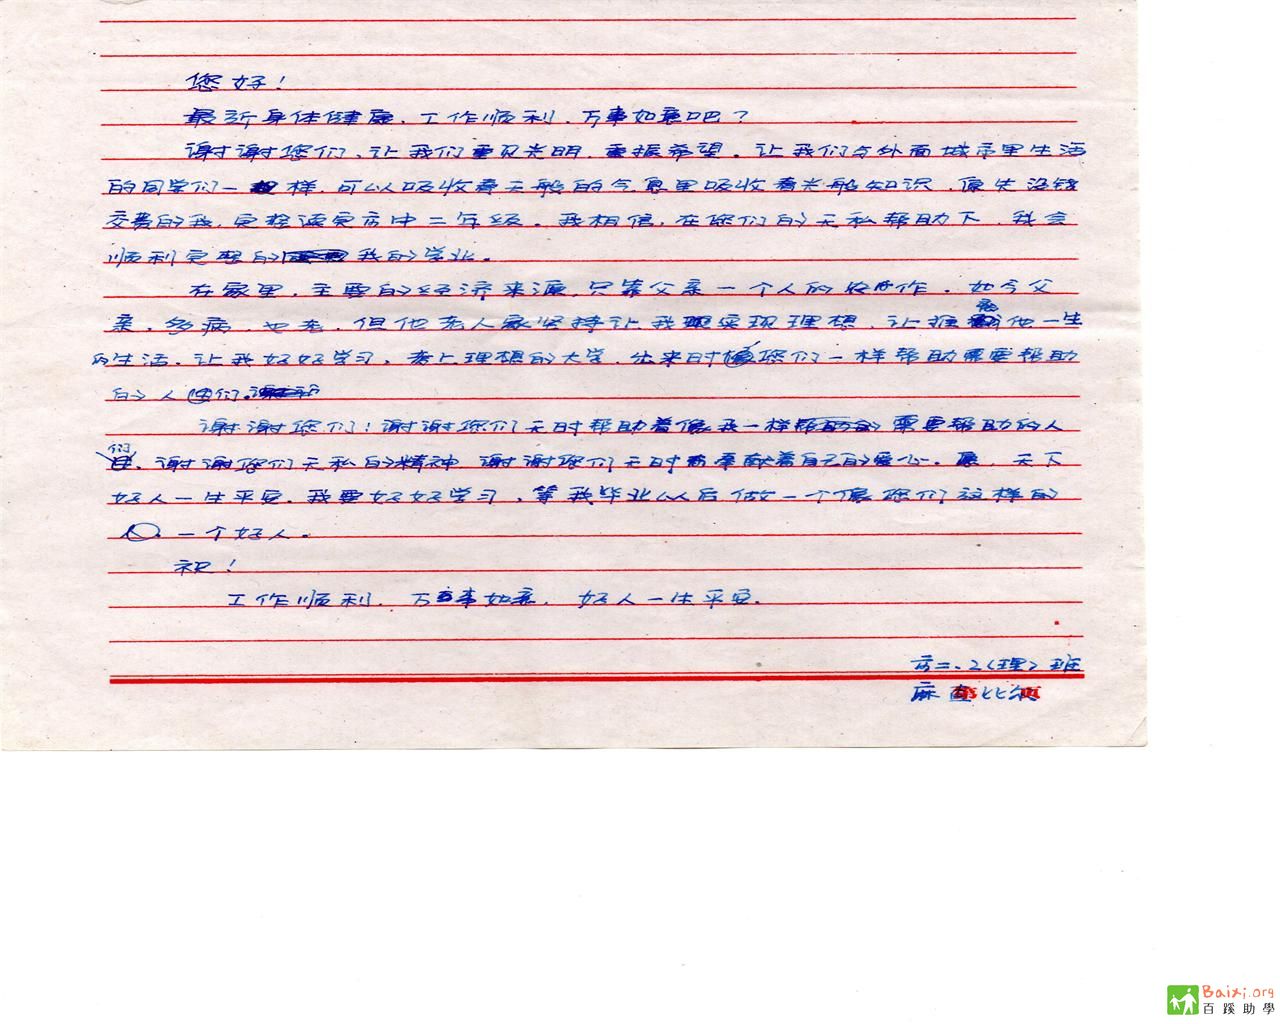 您好！
最近身体健康、工作顺利、万事如意吧？
谢谢您们、让我们重见光明、重振希望。让我们与外面城市里生活
的同学们一样，可以吸收着天般的气息里吸收着光般知识，像失没钱
交费的我，完整读完高中二年级。我相信，在您们的无私帮助下，我会
顺利完 的 我的学业。
在家里，主要的经济来源，只靠父亲一个人的 作。如今父
亲，多病，也老，但他老人家坚持让我 实现理想，让摆 他一生
的生活，让我好好学习，考上理想的大学，出来时像您们一样帮助需要帮助
的人们。
谢谢您们！谢谢您们天时帮助着像我一样 需要帮助的人
们。谢谢您们无私的精神 谢谢您们天时 奉献着自己的爱心。愿，天下
好人一生平安。我要好好学习，等我毕业以后做一个像您们这样的
一个好人。
祝！
工作顺利，万事如意，好人一生平安。
高二.2（理）班
麻 比
Baixi.org
百蹊助學